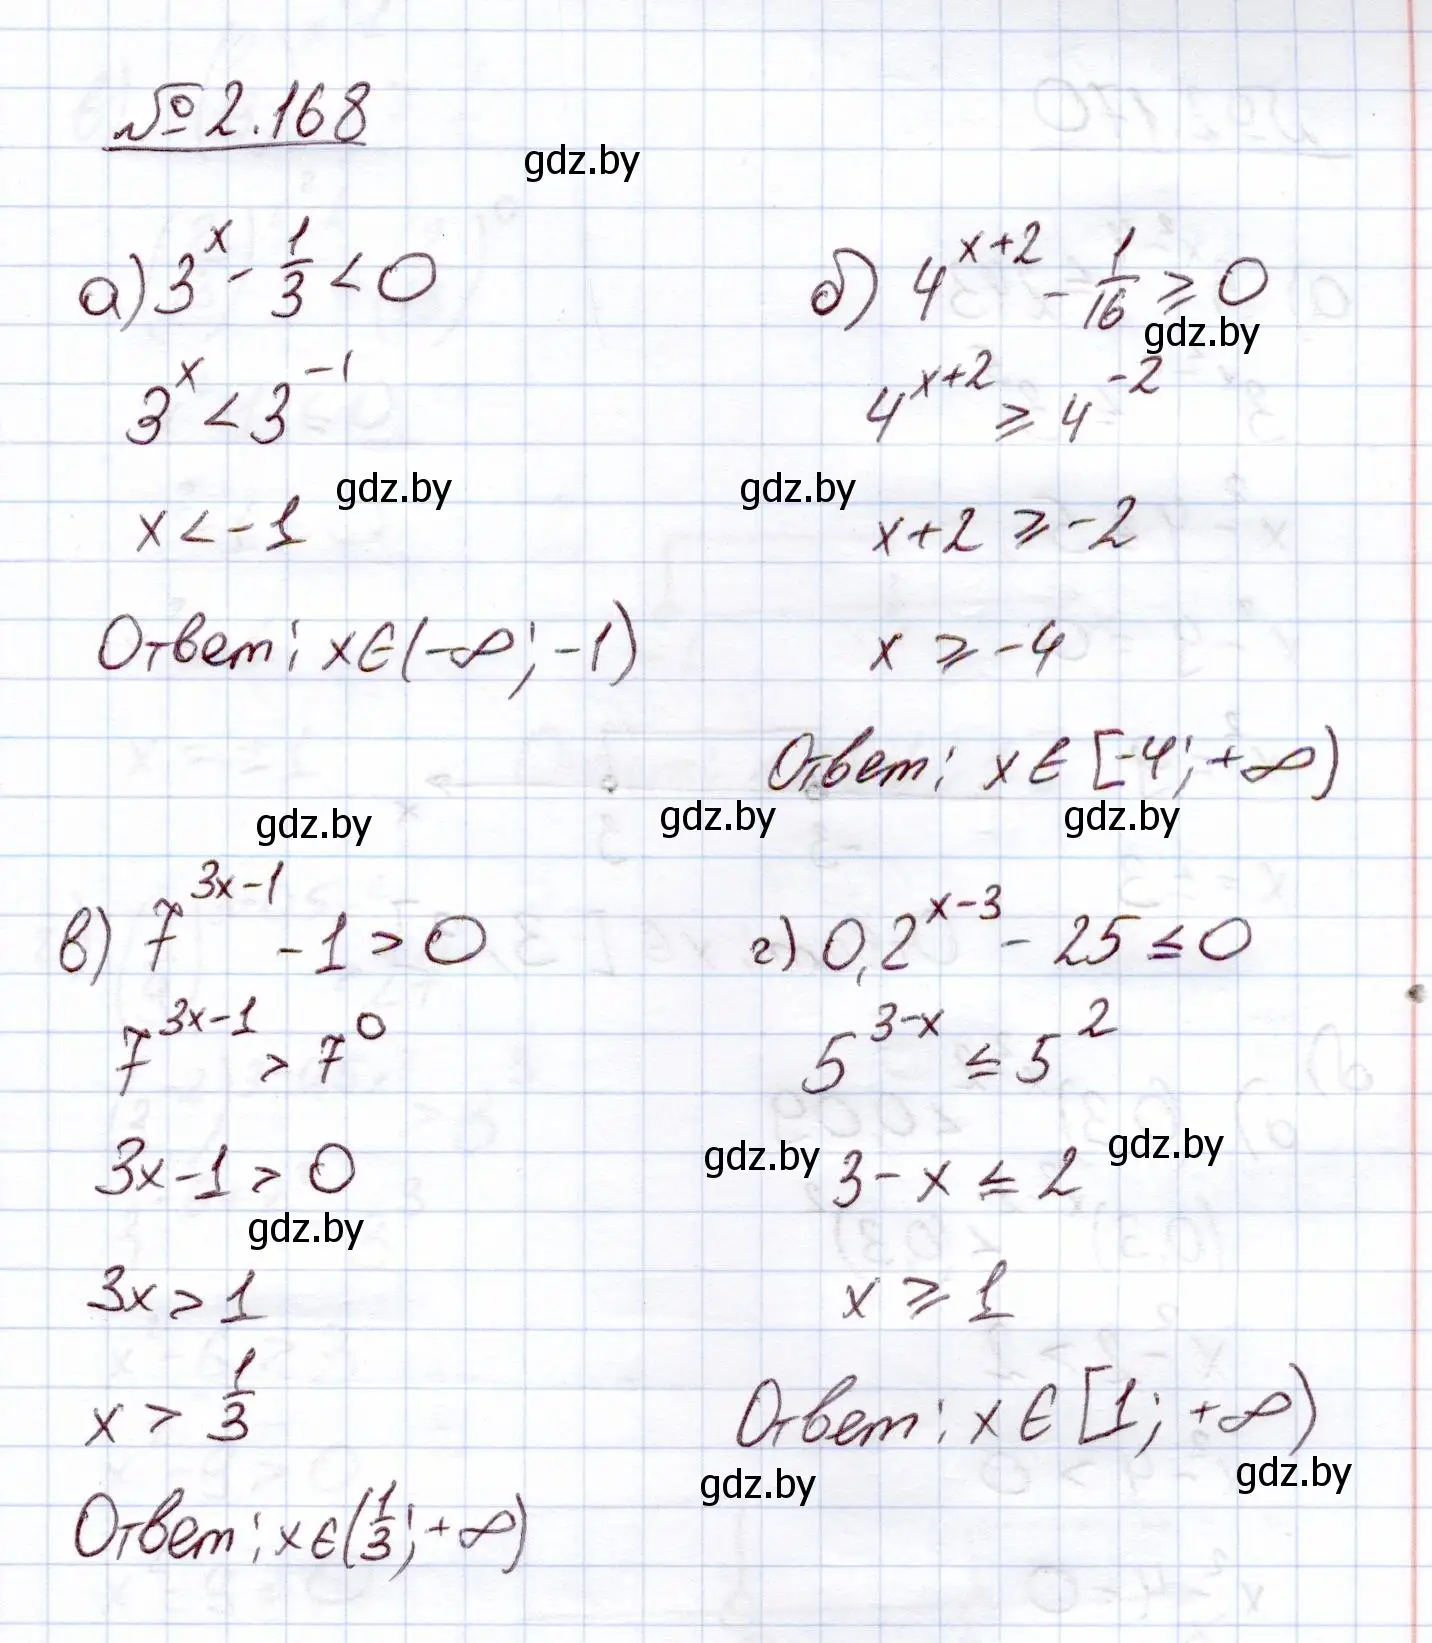 №2.168
gdz.by
а) 3^x - 1/3 < 0
3^x < 3^-1
gdz.by
x < -1
Ответ: x∈(-∞; -1)
б) 4^(x+2) - 1/16 ≥ 0
gdz.by
4^(x+2) ≥ 4^-2
gdz.by
x+2 ≥ -2
x ≥ -4
Ответ: x∈[-4; +∞)
gdz.by gdz.by gdz.by
в) 7^(3x-1) - 1 > 0
7^(3x-1) > 7^0
3x-1 > 0
gdz.by
3x > 1
x > 1/3
Ответ: x∈(1/3; +∞)
г) 0,2^(x-3) - 25 ≤ 0
5^(3-x) ≤ 5^2
gdz.by gdz.by
3-x ≤ 2
x ≥ 1
Ответ: x∈[1; +∞)
gdz.by gdz.by